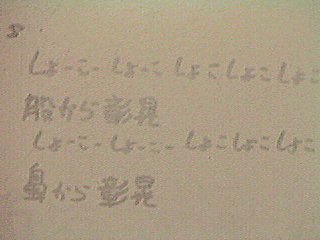 8
しょーこー しょーこ しょこしょこしょこ
股から彰晃
しょーこー しょーこー しょこしょこしょこ
鼻から彰晃